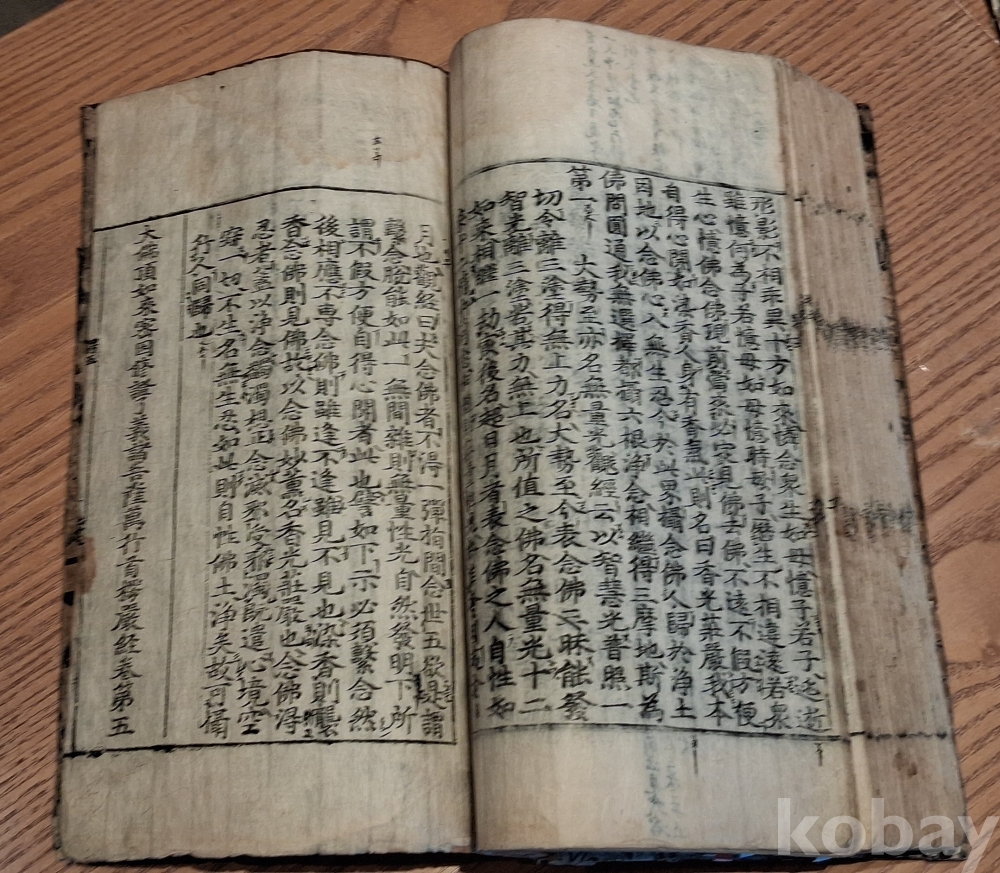 形影不相乖異十方如來憐念衆生如母憶子若子逃逝
雖憶何爲子若憶母如母憶時母子歷生不相違遠若衆
生心憶佛念佛現前當來必定見佛去佛不遠不假方便
自得心開如染香人身有香氣此則名曰香光莊嚴我本
因地以念佛心入無生忍今於此界攝念佛人歸於淨土
佛問圓通我無選擇都攝六根淨念相繼得三摩地斯爲
第一 大勢至亦名無量光觀經云以智慧光普照一
切令離三塗得無上力名大勢至今表念佛三昧能發
智光離三塗苦其力無上也所值之佛名無量光十二
如來相繼一劫寅後名超日月者表念佛之人自性如
日也觀經曰大念佛者不得一彈指間念世五欲是謂
繫念脫能如此一無間雜則無量性光自然發明下所
謂不假方便自得心開者此也譬如下示必須繫念然
後相應不專念佛則雖逢不逢雖見不見也染香則襲
香念佛則見佛此以念佛妙薰名香光莊嚴也念佛得
忍者盖以淨念獨想正念滅邪受雜濁旣遣心境空
寂一切不生名無生忍如此則自性佛土淨矣故可攝
行人同歸也
大佛頂如來密因修證了義諸菩薩萬行首楞嚴經卷第五
kobay